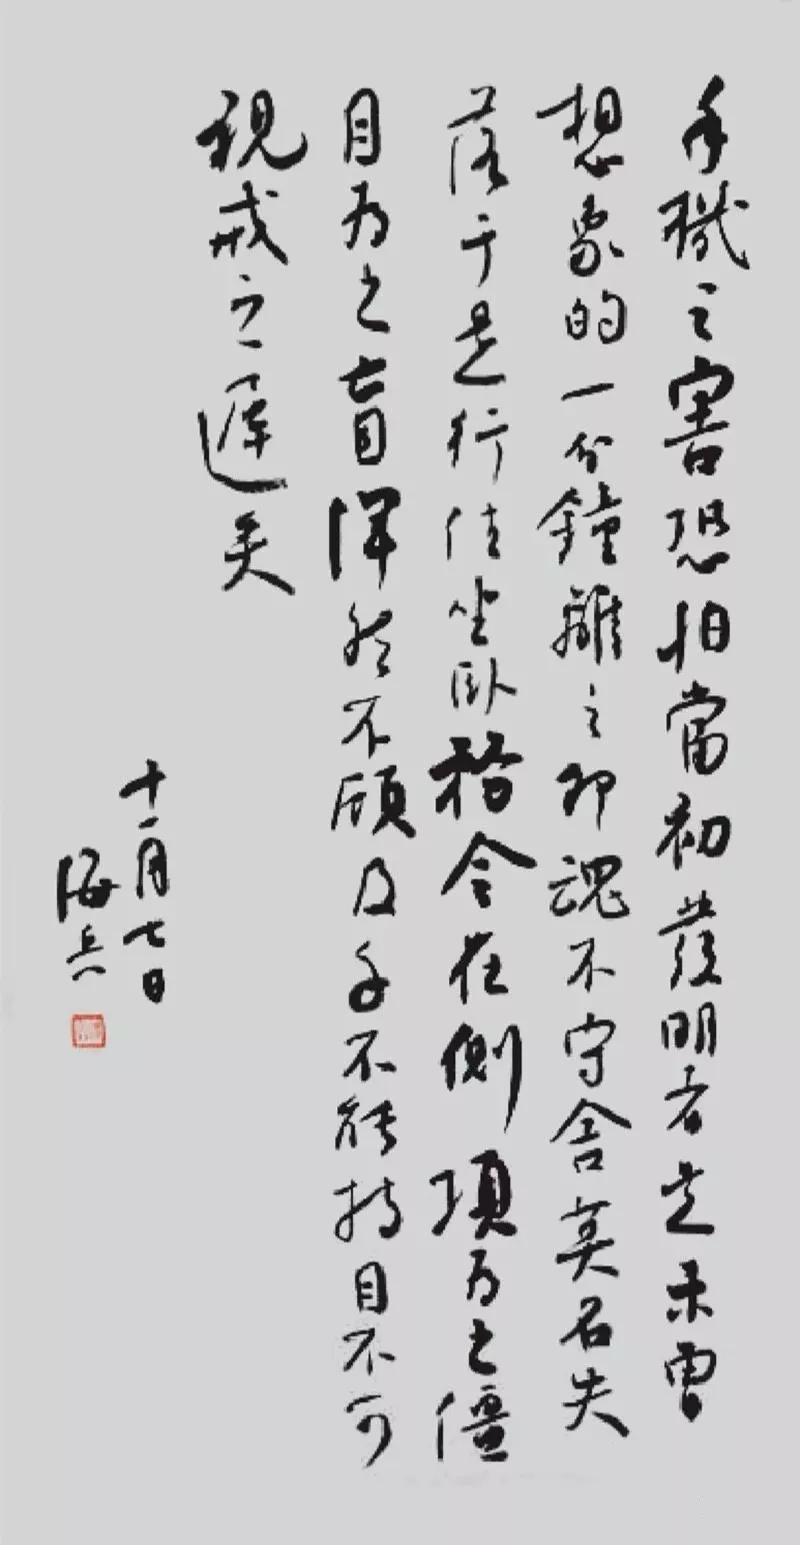 手機之害恐怕當初發明者是未曾
想象的一分鐘離之即魂不守舍莫名失
落于是行住坐卧務令在側項为之僵
目为之盲渾然不顧及手不能持目不可
視戒之遲矣
十一月七日
海兵